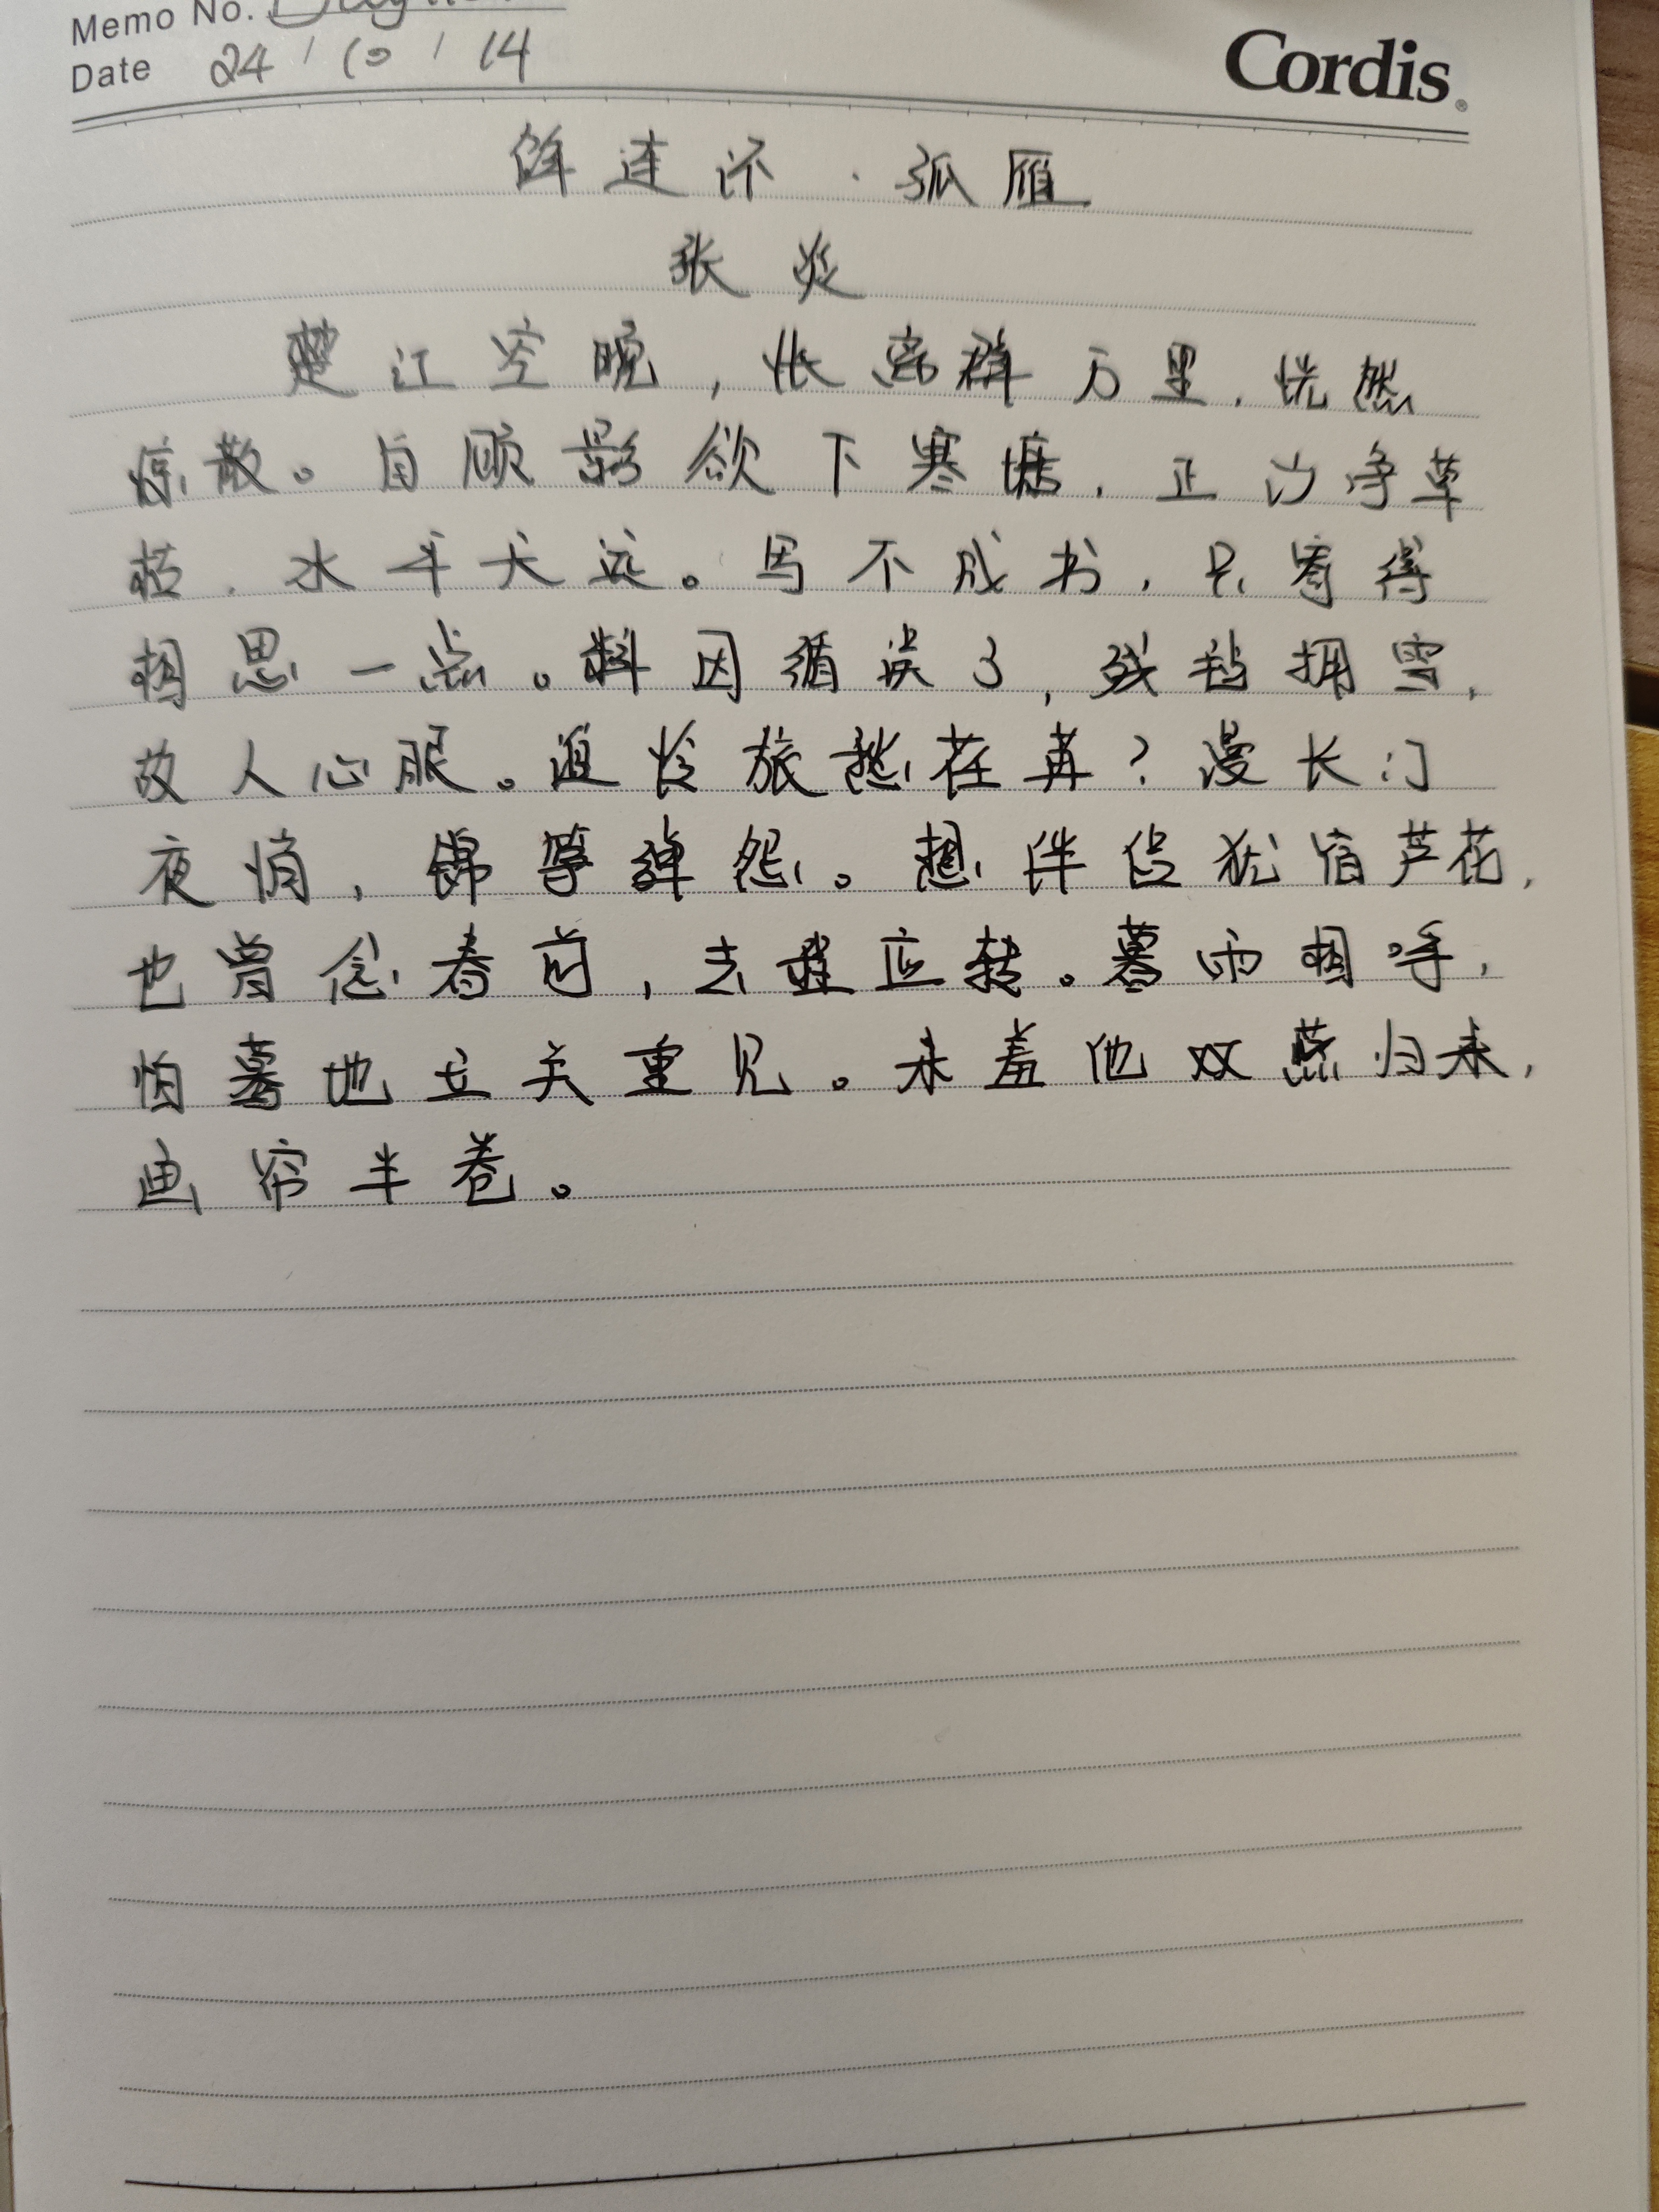 Memo No.
Date 24 / 10 / 14
Cordis
解连环·孤雁
张炎
楚江空晚，怅离群万里，恍然
惊散。自顾影欲下寒塘，正沙净草
枯，水平天远。写不成书，只寄得
相思一点。料因循误了，残毡拥雪，
故人心眼。谁怜旅愁荏苒？漫长门
夜悄，锦筝弹怨。想伴侣犹宿芦花，
也曾念春前，去程应转。暮雨相呼，
怕蓦地玉关重见。未羞他双燕归来，
画帘半卷。